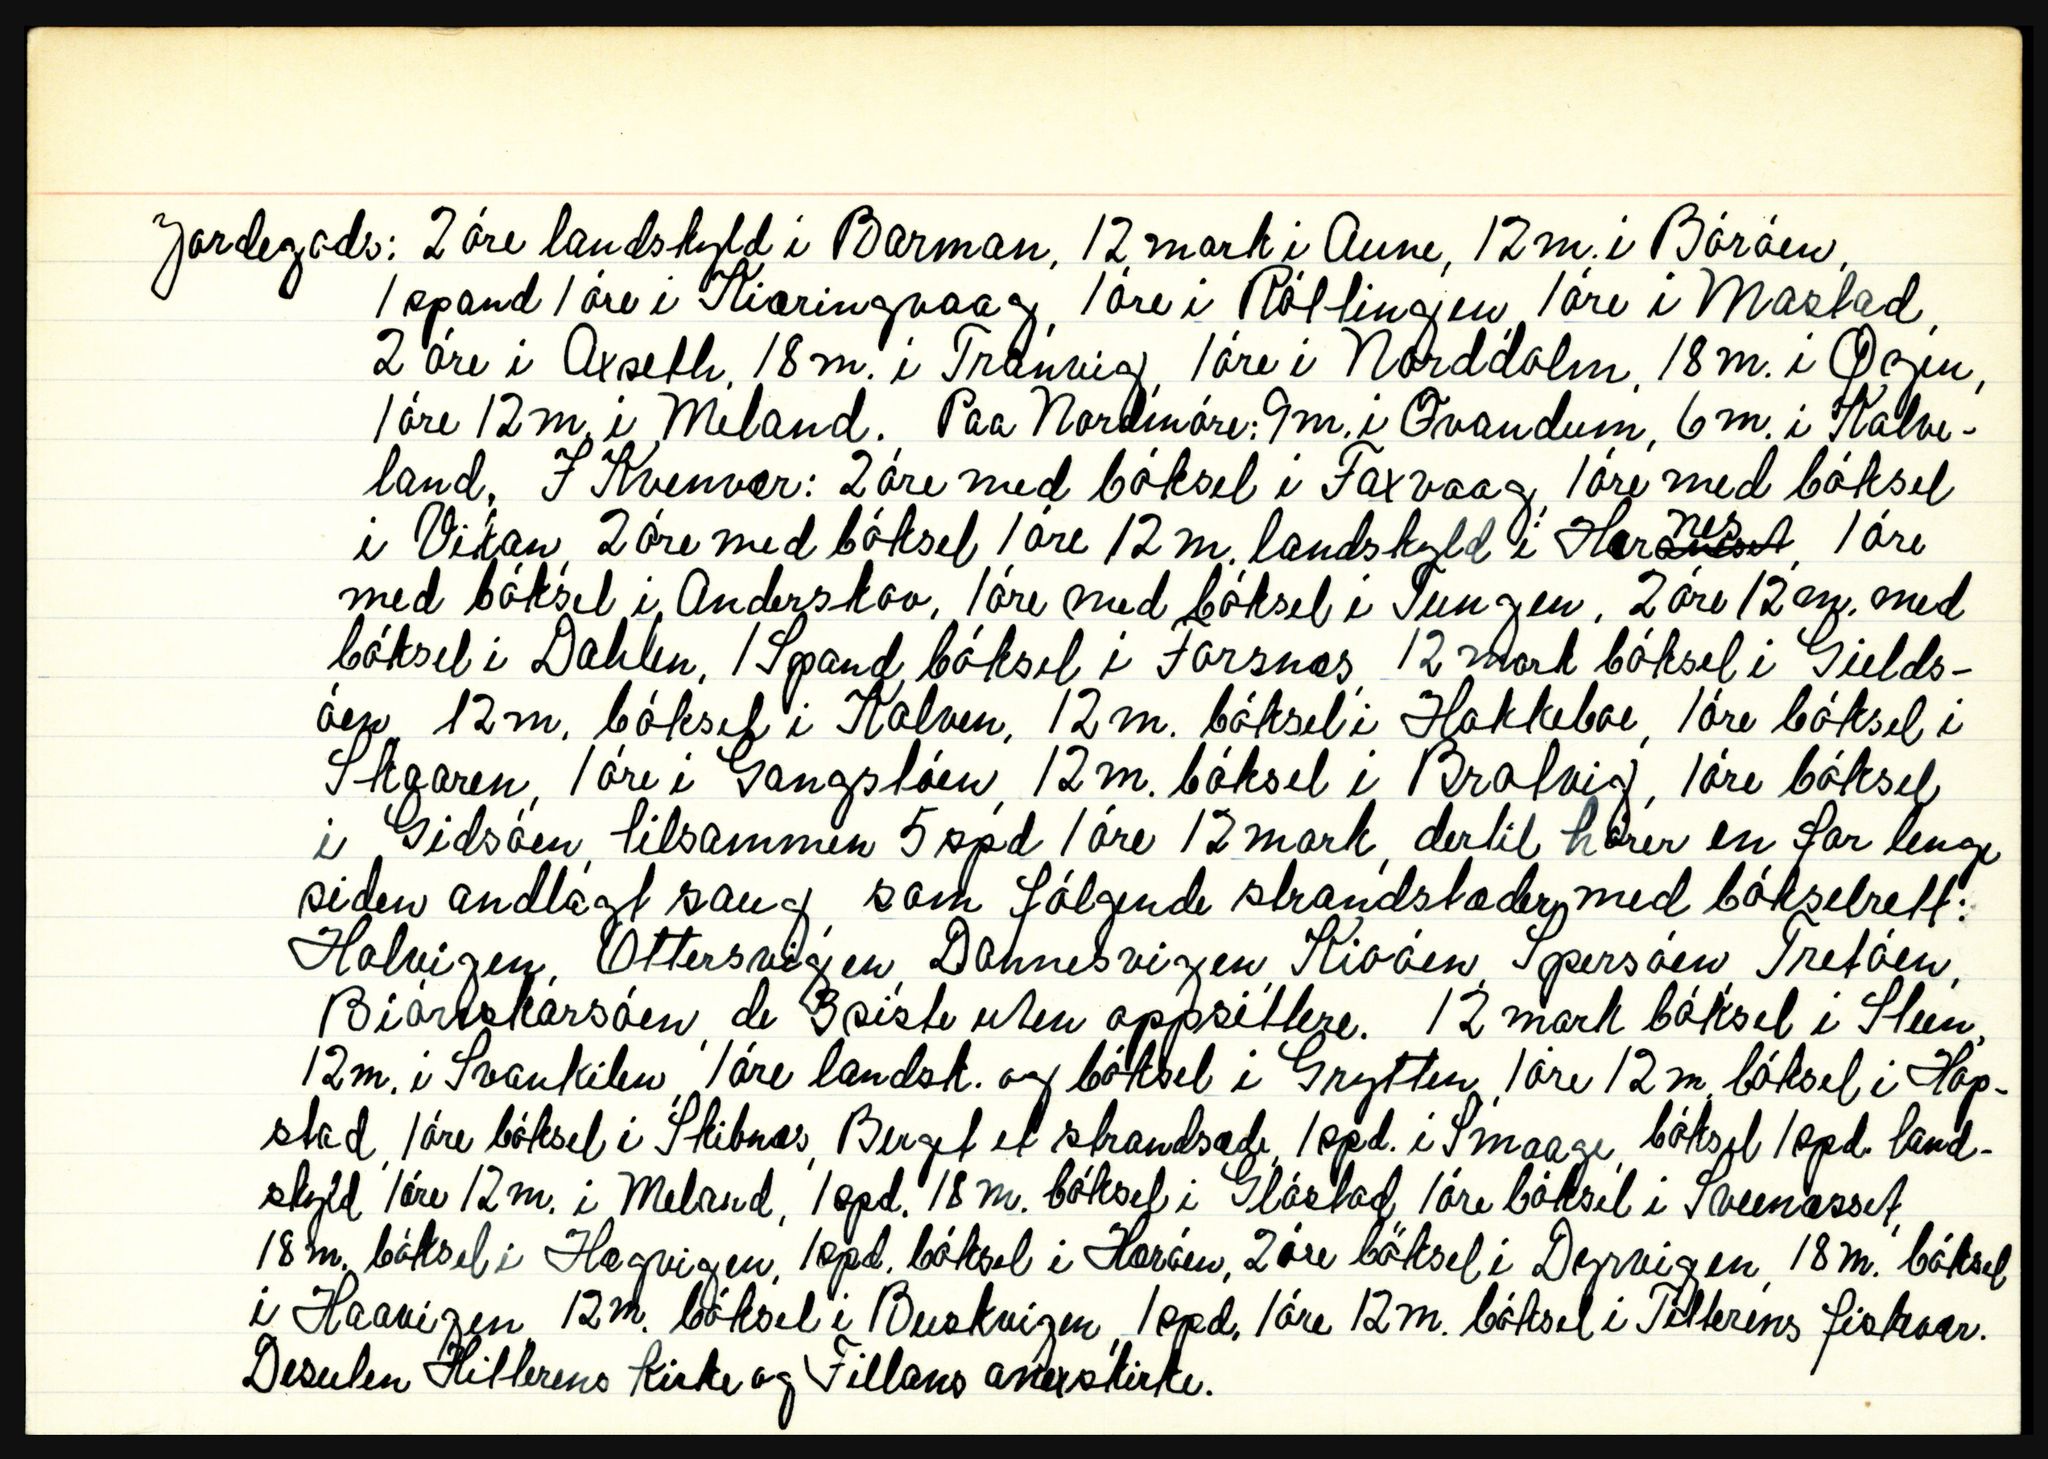 Jordegods: 2 öre landskyld i Barman, 12 mark i Aune, 12 m. i Böröen,
1 spand 1 öre i Kiæringvaag, 1 öre i Röltingen, 1 öre i Mastad,
2 öre i Axseth, 18 m. i Tranvig, 1 öre i Norddalm, 18 m. i Øxen,
1 öre 12 m. i Meland. Paa Nordmöre: 9 m. i Qvandum, 6 m. i Kalve-
land. I Kvenvær: 2 öre med böksel i Faxvaag, 1 öre med böksel
i Vikan, 2 öre med böksel 1 öre 12 m. landskyld i Harnes, 1 öre
med böksel i Anderskov, 1 öre med böksel i Tungen, 2 öre 12 m. med
böksel i Dahlen, 1 Spand böksel i Forsnæs, 12 mark böksel i Gields-
öen, 12 m. böksel i Kalven, 12 m. böksel i Hakkeboe, 1 öre böksel i
Skaaren, 1 öre i Gangstöen, 12 m. böksel i Bratvig, 1 öre böksel
i Gidsöen, tilsammen 5 spd 1 öre 12 mark, dertil hörer en for lenge
siden andlagt saug samt fölgende strandstæder med bökselrett:
Holvigen, Ottersvigen, Dannesvigen, Kioöen, Spersöen, Tretöen,
Biörnskarsöen, de 3 siste uten oppsittere. 12 mark böksel i Steen,
12 m. i Svankilen, 1 öre landsk. og böksel i Grytten, 1 öre 12 m. böksel i Hop-
stad, 1 öre böksel i Skibnæs, Berget et strandsæde, 1 spd. i Smaage, böksel 1 spd. land-
skyld 1 öre 12 m. i Meland, 1 spd. 18 m. böksel i Glöstad, 1 öre böksel i Sveenæsset,
18 m. böksel i Hægvigen, 1 spd. böksel i Haröen, 2 öre böksel i Dyrvigen, 18 m. böksel
i Haavigen, 12 m. böksel i Buskvigen, 1 spd. 1 öre 12 m. böksel i Titterens fiskvær.
Desuten Hitterens kirke og Fillans anexkirke.